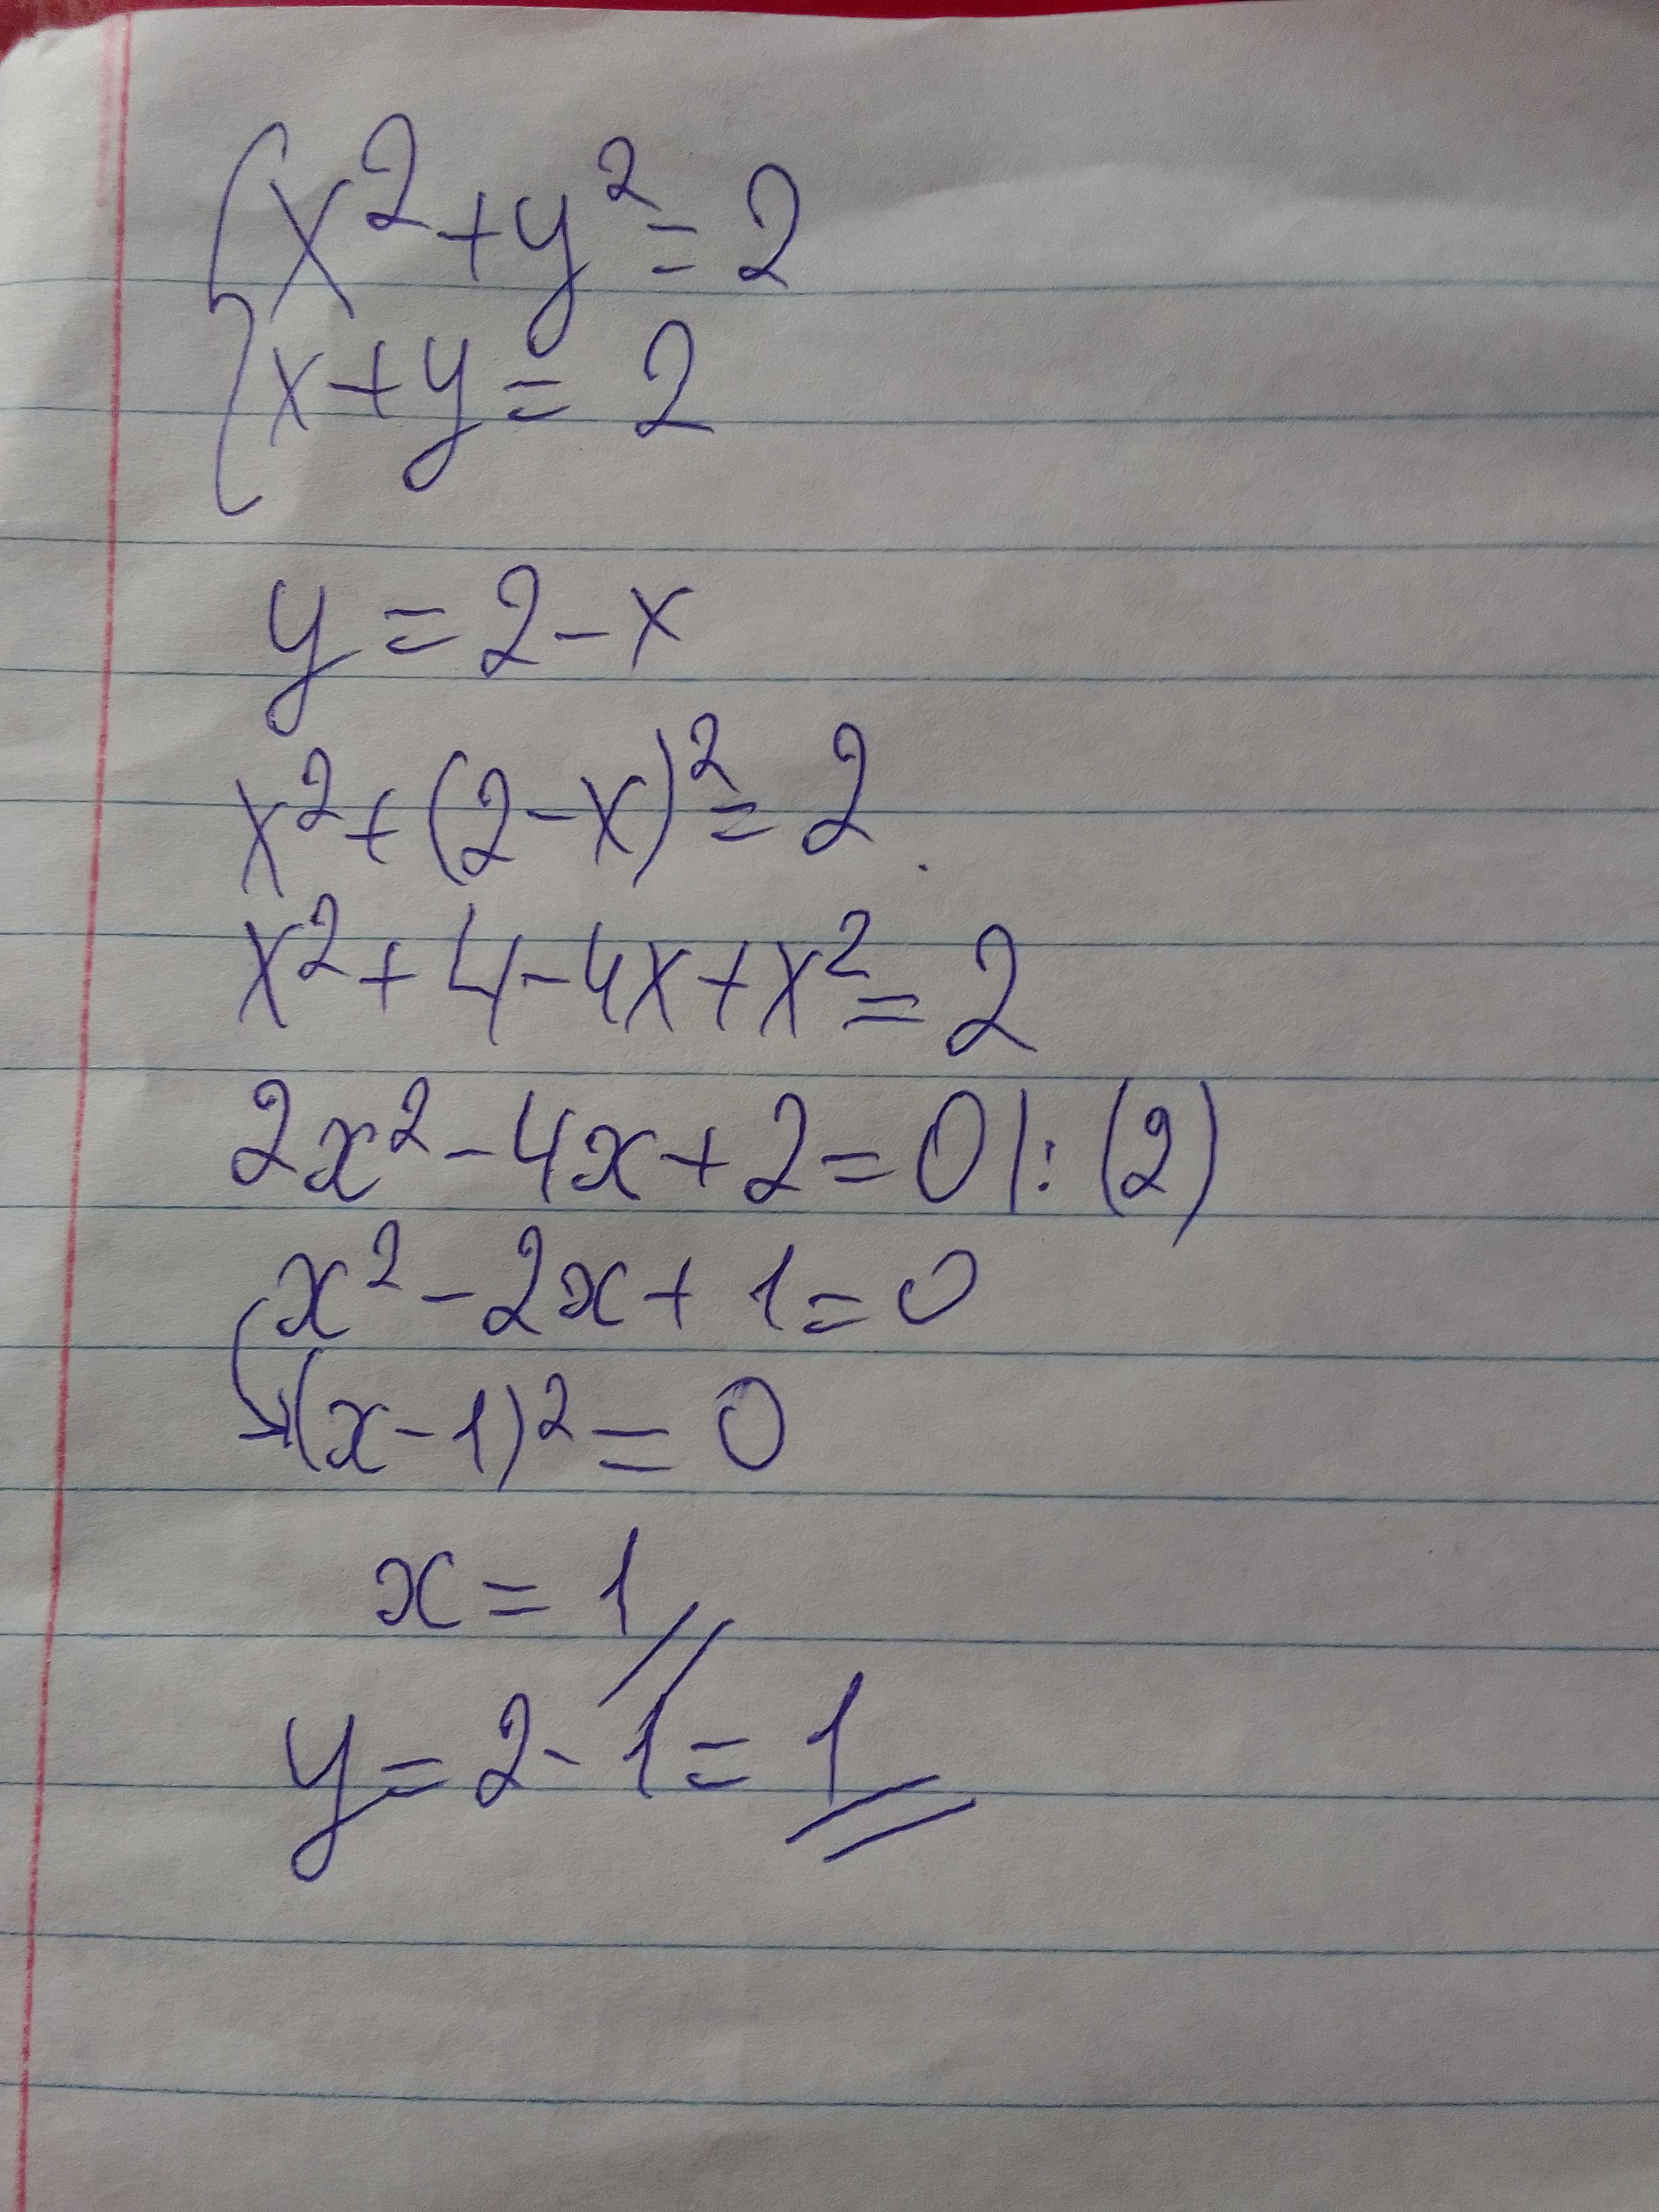 {x²+y²=2
x+y=2
y=2-x
x²+(2-x)²=2
x²+4-4x+x²=2
2x²-4x+2=0|:(2)
x²-2x+1=0
→(x-1)²=0
x=1
y=2-1=1